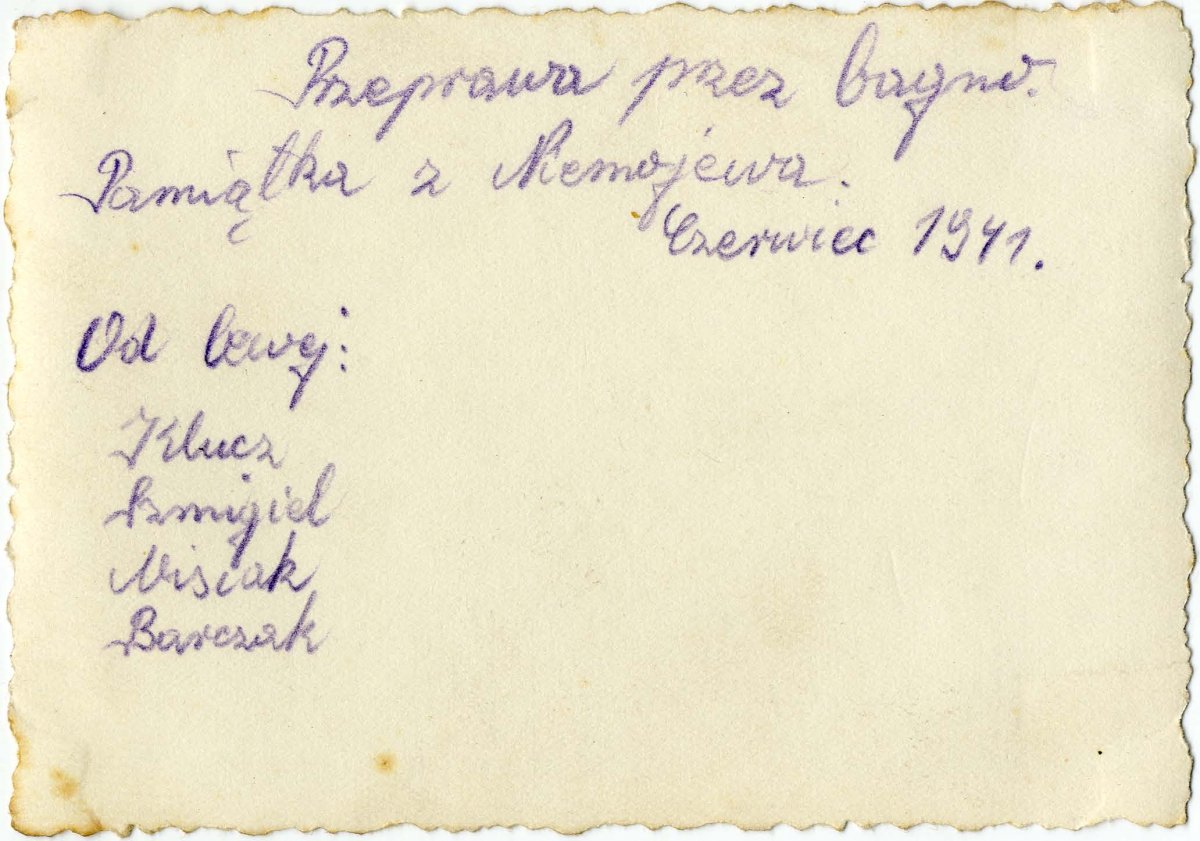 Przeprawa przez bagno.
Pamiątka z Niemojewa.
Czerwiec 1941.
Od lewej:
Klucz
Szmigiel
Misiak
Barczak